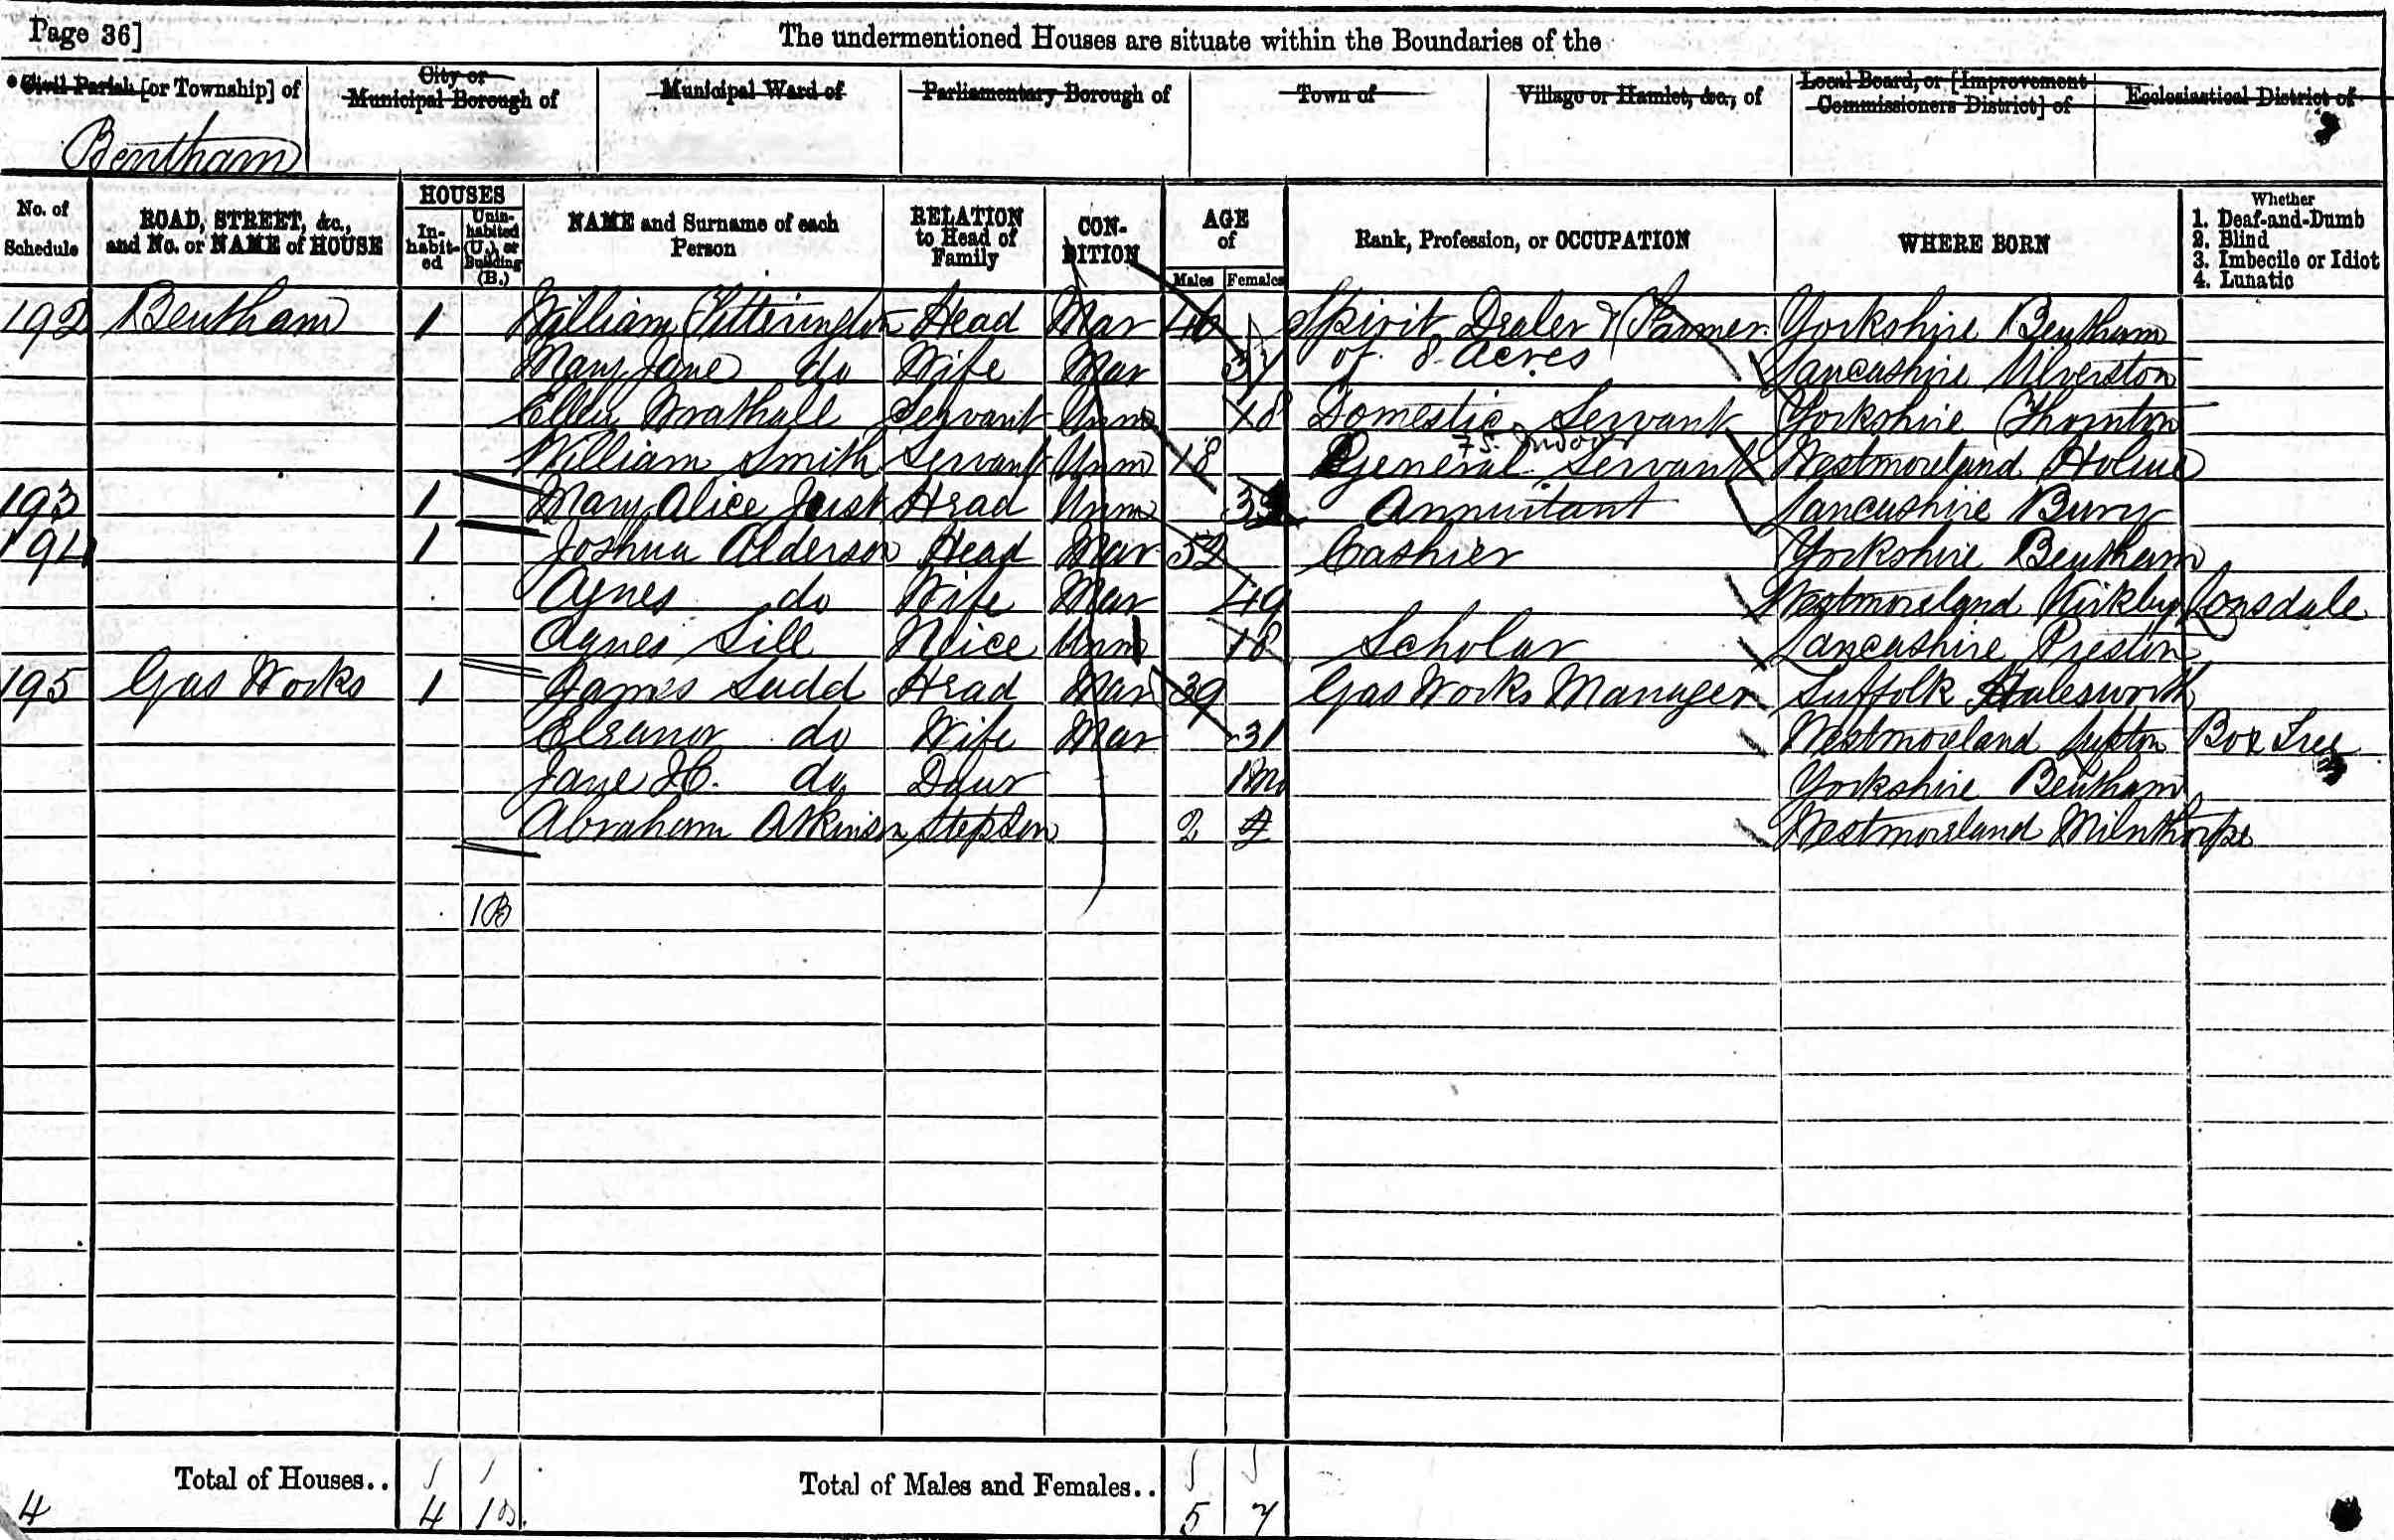 Page 36]
The undermentioned Houses are situate within the Boundaries of the
Civil Parish [or Township] of
City or Municipal Borough of
Municipal Ward of
Parliamentary Borough of
Town of
Village or Hamlet, &c., of
Local Board, or [Improvement Commissioners District] of
Ecclesiastical District of
Bentham
No. of Schedule
ROAD, STREET, &c., and No. or NAME of HOUSE
HOUSES
In-habit-ed
Unin-habited (U.), or Building (B.)
NAME and Surname of each Person
RELATION to Head of Family
CON-DITION
AGE of
Males
Females
Rank, Profession, or OCCUPATION
WHERE BORN
Whether
1. Deaf-and-Dumb
2. Blind
3. Imbecile or Idiot
4. Lunatic
192 Bentham 1 William Titterington Head Mar 40 Spirit Dealer & Farmer Yorkshire Bentham
Mary Jane do Wife Mar 37 of 8 Acres Lancashire Ulverston
Ellen Brathall Servant Unm 18 Domestic Servant Yorkshire Thornton
William Smith Servant Unm 18 General Servant Indoor Westmoreland Holme
193 1 Mary Alice Just Head Unm Annuitant Lancashire Bury
194 1 Joshua Alderson Head Mar 52 Cashier Yorkshire Bentham
Agnes do Wife Mar 49 Westmoreland Kirkby Lonsdale
Agnes Sill Neice Unm 18 Scholar Lancashire Preston
195 Gas Works 1 James Ludd Head Mar 39 Gas Works Manager Suffolk Halesworth
Eleanor do Wife Mar 31 Westmoreland Lupton Box Tree
Jane H. do Daur 1 Mo Yorkshire Bentham
Abraham Atkinson Stepson 2 Westmoreland Milnthorpe
1B
Total of Houses..
4 1B.
Total of Males and Females..
5 7
4